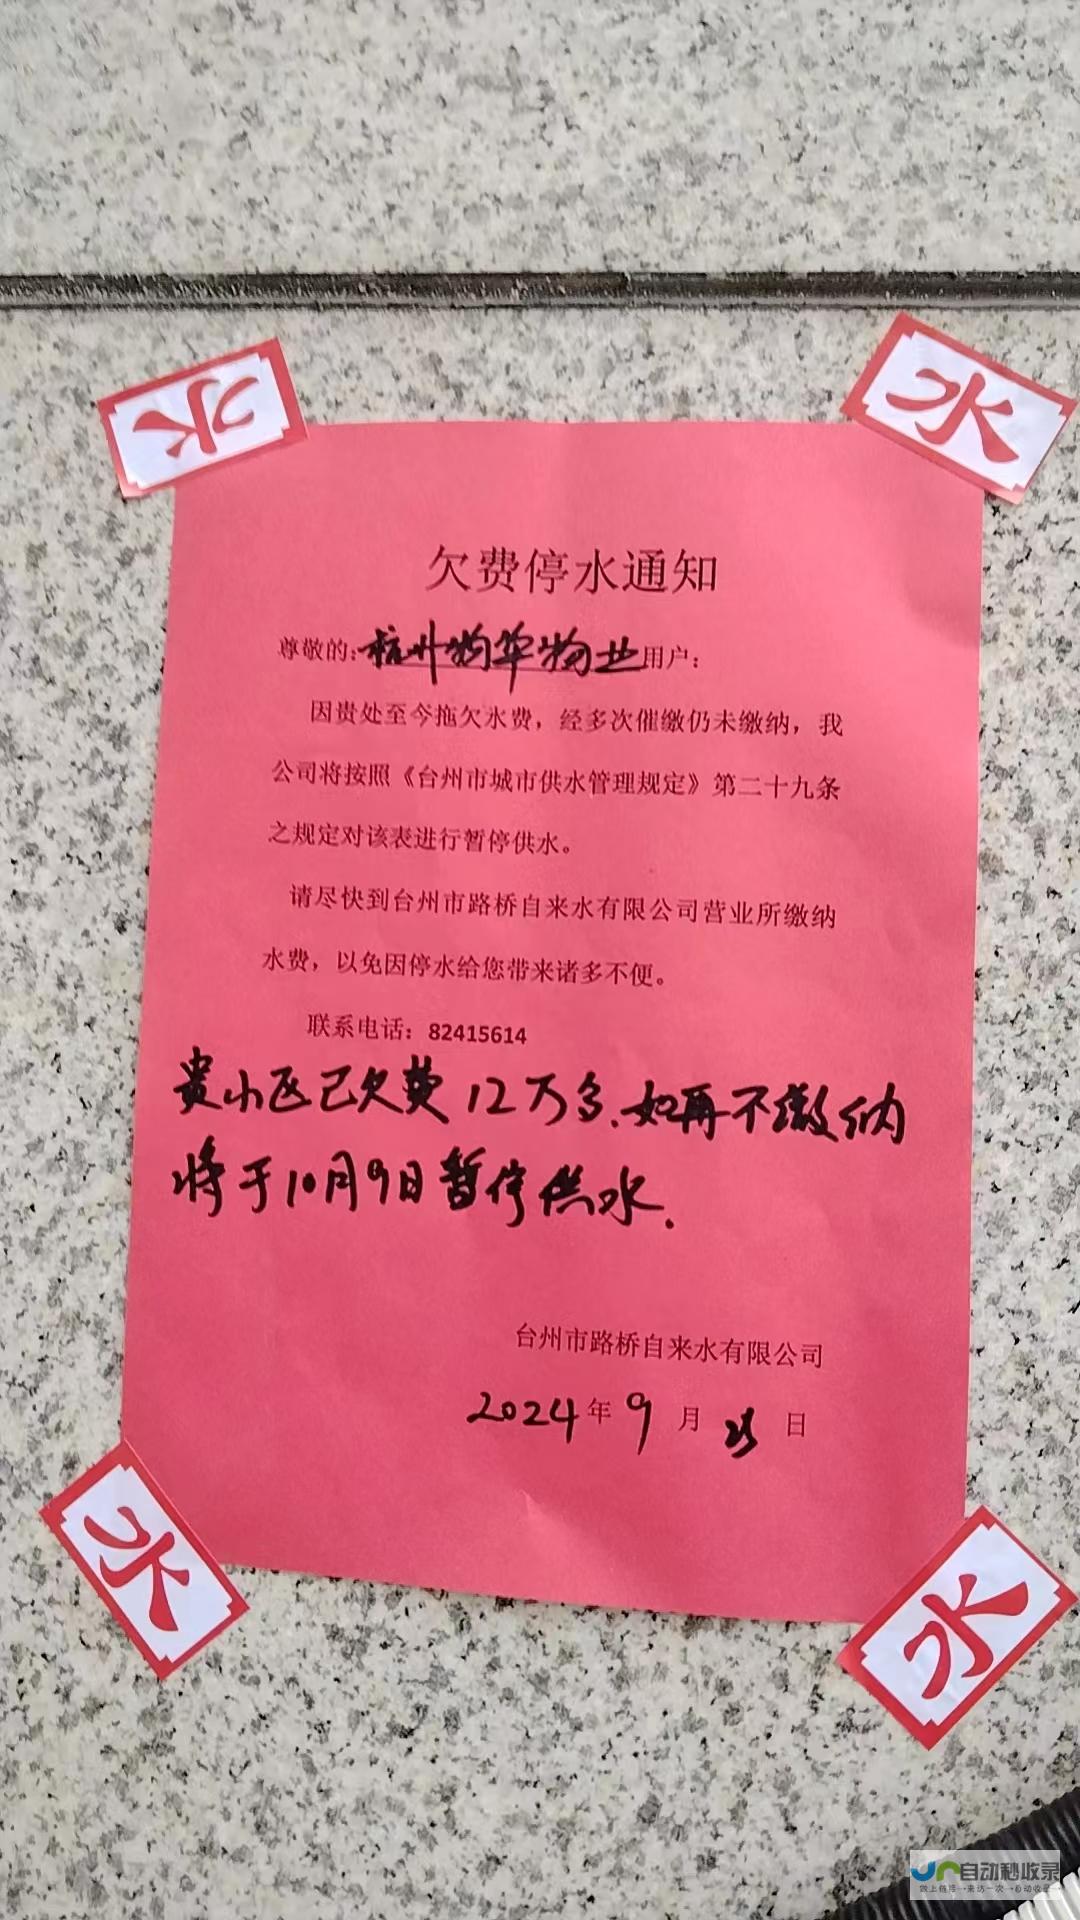 水
水
欠费停水通知
尊敬的:杭州物华物业用户:
因贵处至今拖欠水费，经多次催缴仍未缴纳，我
公司将按照《台州市城市供水管理规定》第二十九条
之规定对该表进行暂停供水。
请尽快到台州市路桥自来水有限公司营业所缴纳
水费，以免因停水给您带来诸多不便。
联系电话：82415614
贵小区已欠费12万多.如再不缴纳
将于10月9日暂停供水.
台州市路桥自来水有限公司
2024年9月 日
水
水
自动秒收录
做上链接→来访一次→自动收录